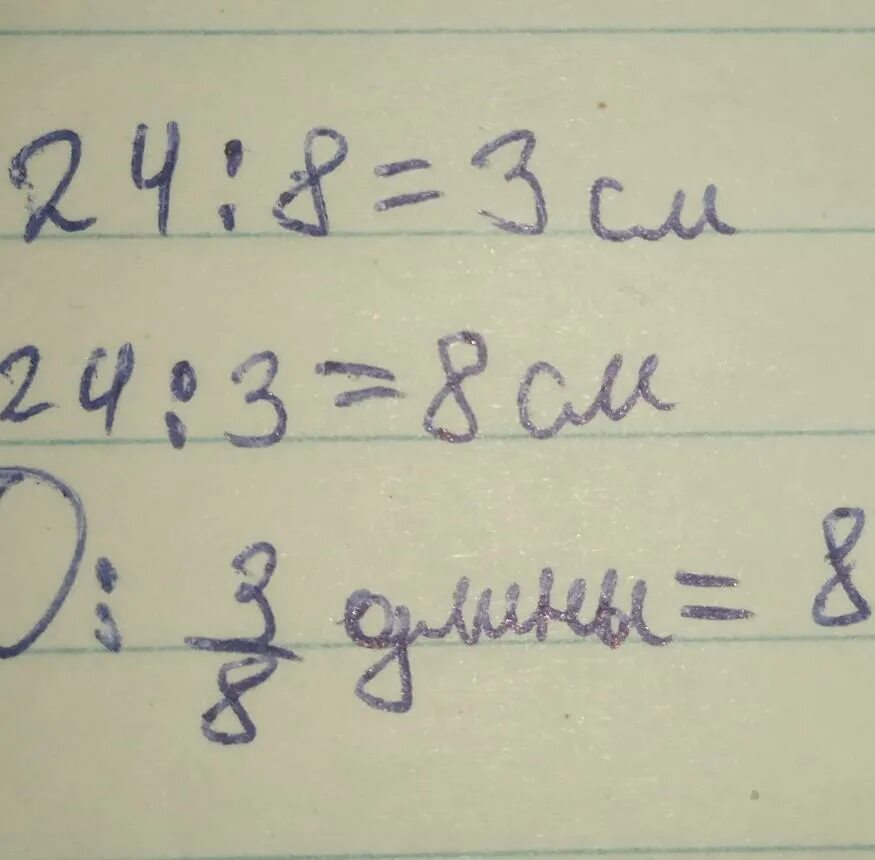 24 : 8 = 3 см
24 : 3 = 8 см
: 3/8 длины = 8